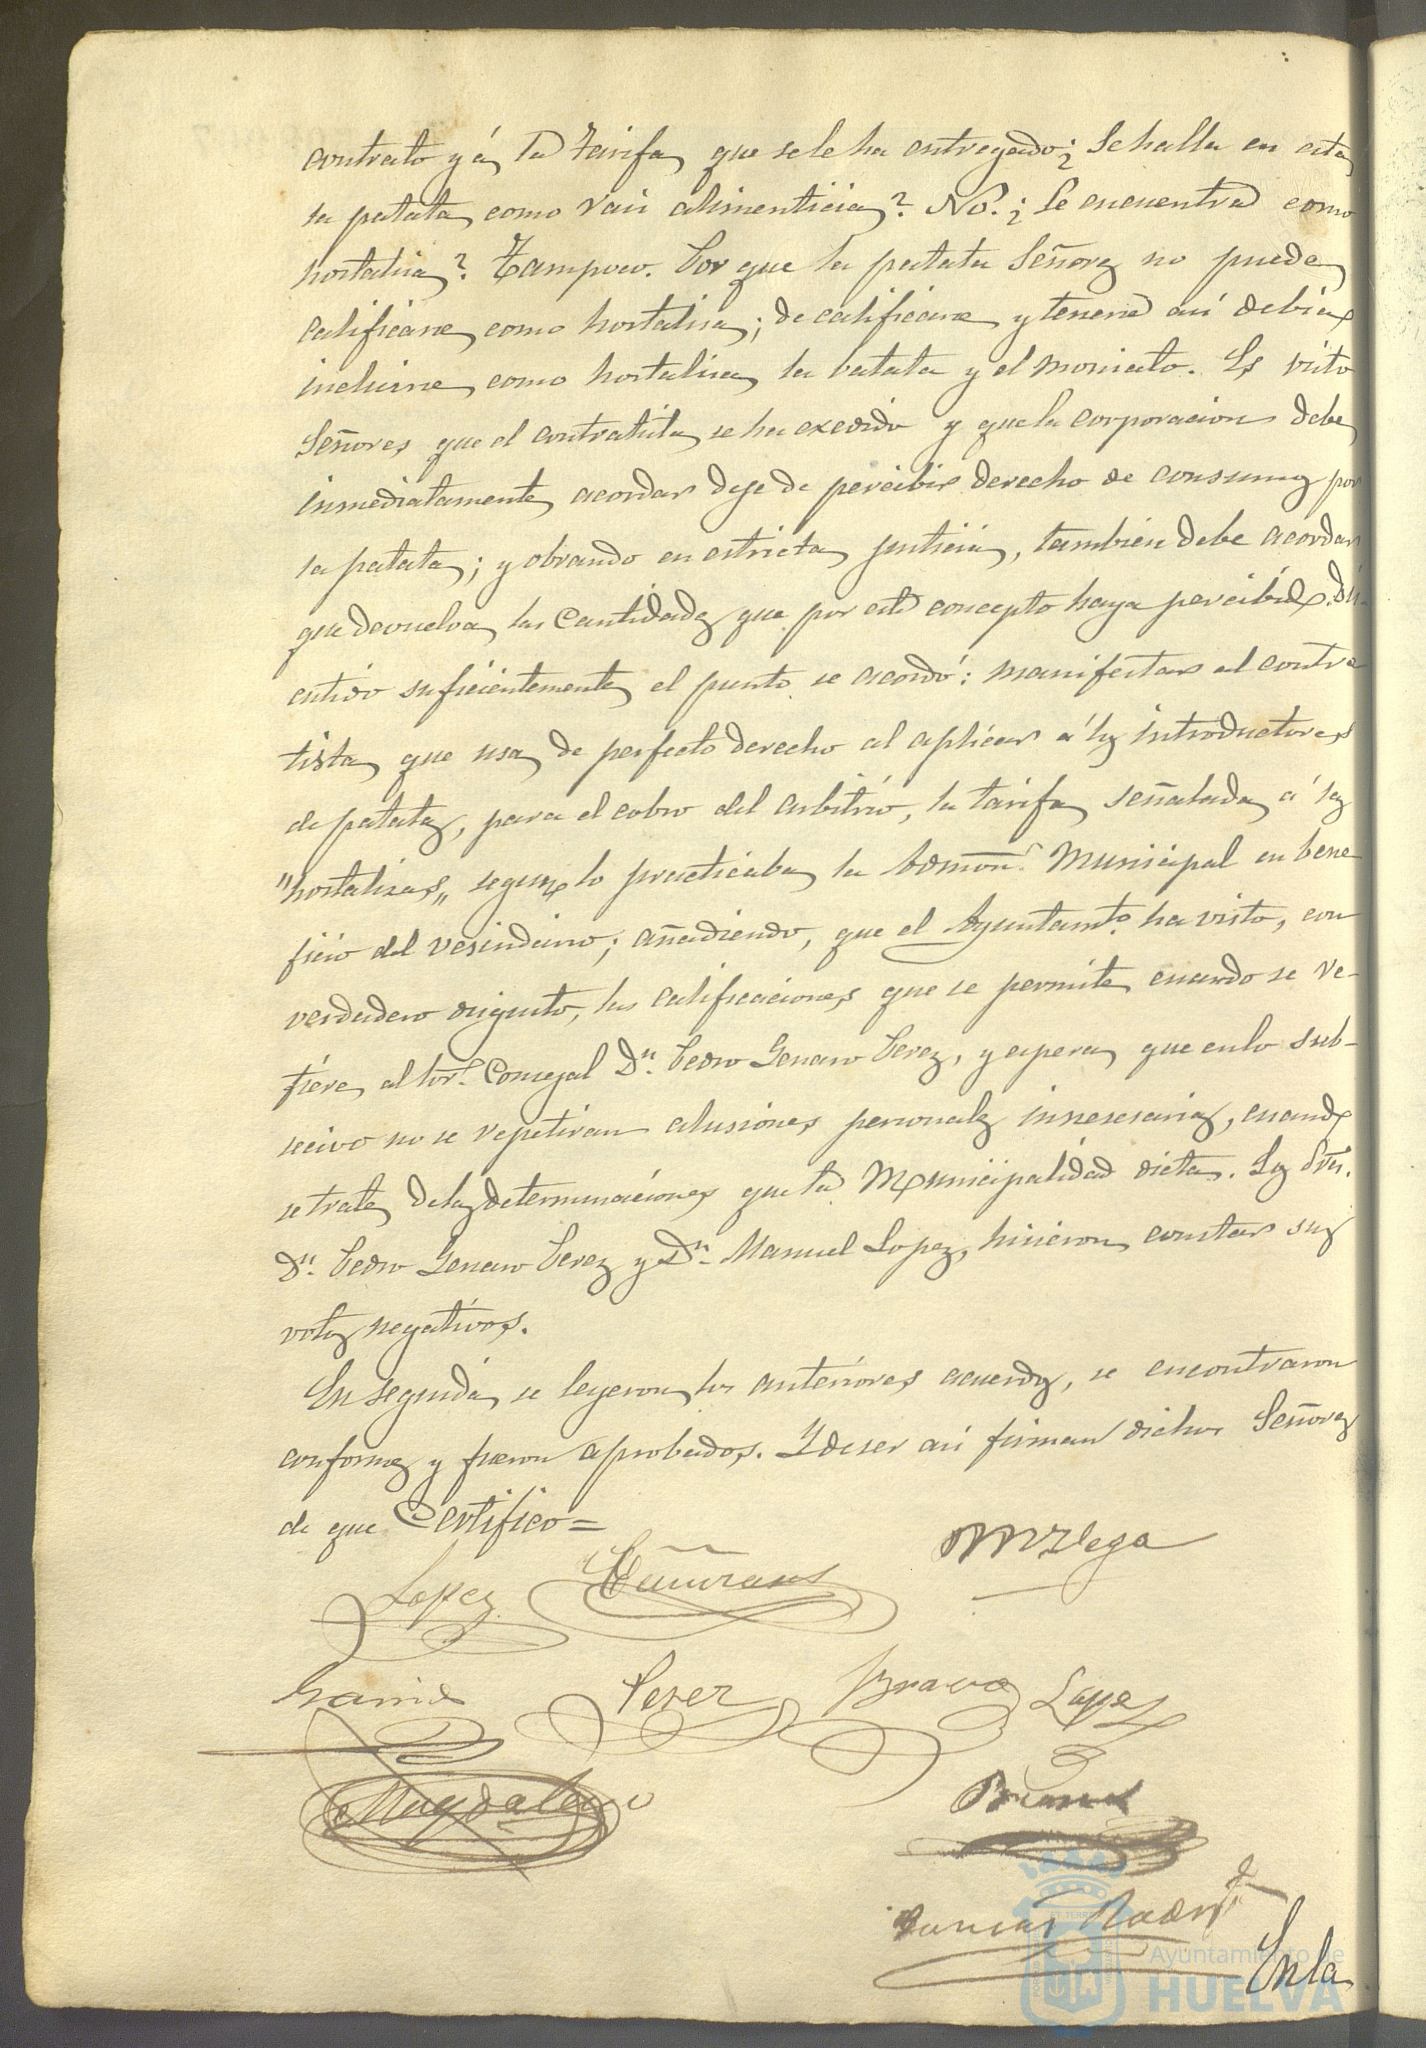 contrato y á la tarifa que se le ha entregado; ¿Se halla en esta
la patata como raiz alimenticia? No. ¿Se encuentra como
hortaliza? Tampoco. Por que la patata Señores no puede
calificarse como hortaliza; de calificarse y tenerse asi debia
incluirse como hortaliza la batata y el moniato. Es visto
Señores que el contratista se ha exedido y que la corporacion debe
inmediatamente acordar deje de percibir derecho de consumos por
la patata; y obrando en estricta justicia, tambien debe acordar
que devuelva las cantidades que por este concepto haya percibido. Dis-
cutido suficientemente el punto se acordó: manifestar al contra
tista que usa de perfecto derecho al aplicar á los introductores
de patatas, para el cobro del arbitrio, la tarifa señalada á las
"hortalizas" segun lo practicaba la Admon. Municipal en bene
ficio del vesindario; añadiendo, que el Ayuntamto. ha visto, con
verdadero disgusto, las calificaciones que se permite cuando se re-
fiere al Sor. Concejal Dn. Pedro Genaro Perez, y espera que en lo sub-
secivo no se repetiran alusiones personales innesesarias, cuando
se trate de las determinaciones que la Municipalidad dicta. Los Sres.
Dn. Pedro Genaro Perez y Dn. Manuel Lopez, hicieron constar sus
votos negativos.
En seguida se leyeron los anteriores acuerdos, se encontraron
conformes y fueron aprobados. Y de ser asi firman dichos Señores
de que Certifico=
Lopez
Garcia Perez Bravo Lopez
Magdaleno
Enla
Ayuntamiento de
HUELVA